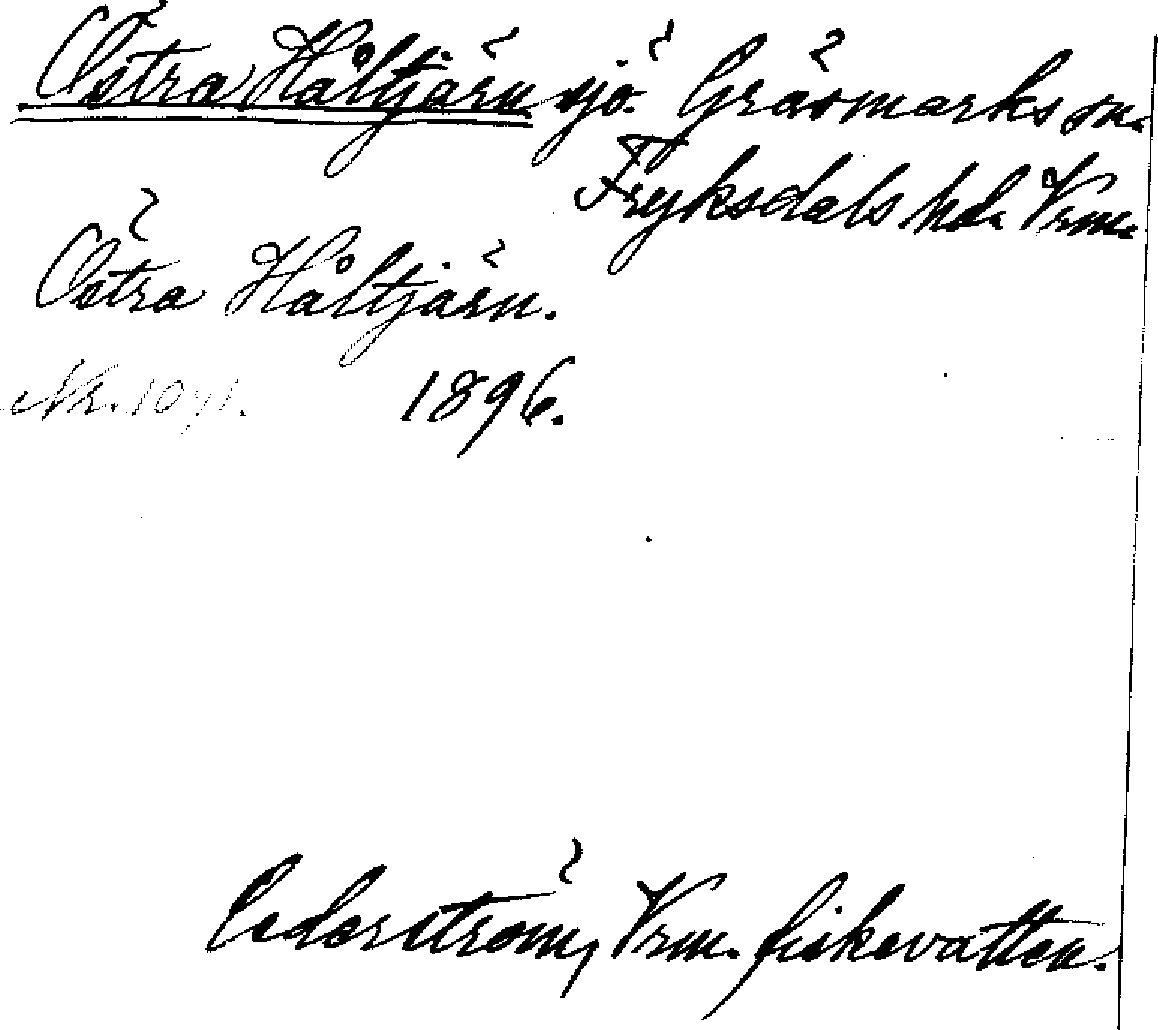 Östra Håltjärn sjö. Gräsmarks sn.
Fryksdals hd. Vrm.
Östra Håltjärn.
Nr. 1071. 1896.
Cederström, Vrm. fiskevatten.